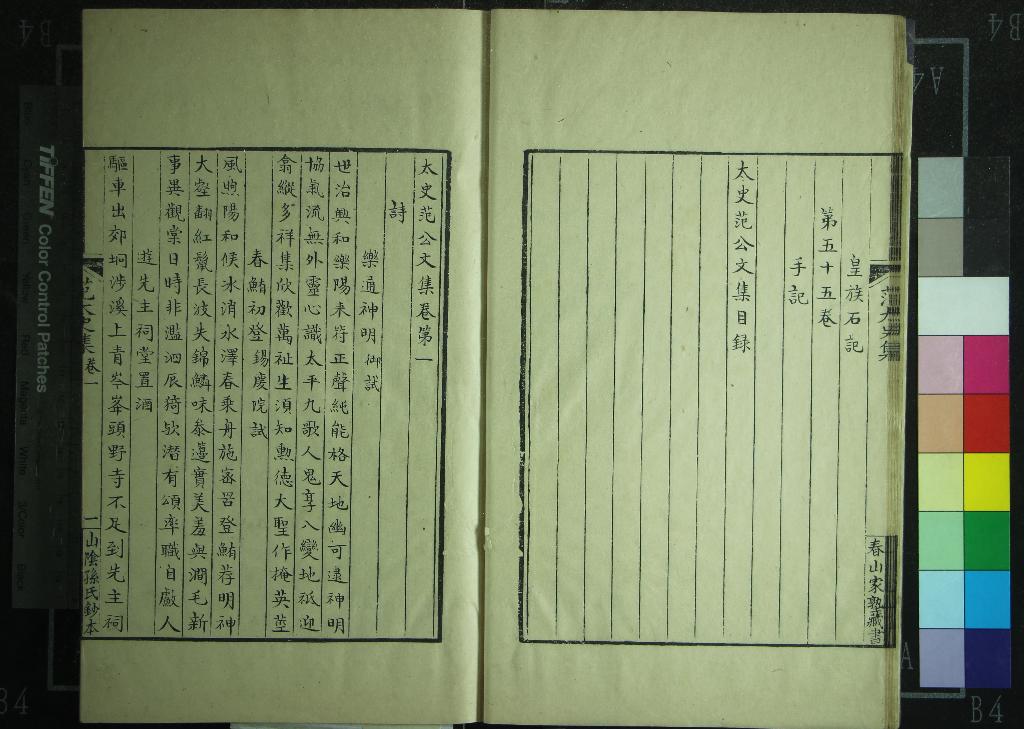 皇族石記
第五十五卷
手記
太史范公文集目録
春山家塾藏書
太史范公文集卷第一
詩
樂通神明御試
世治興和樂陽来符正聲純能格天地幽可逮神明
協氣流無外靈心識太平九歌人鬼享八變地祇迎
翕縱多祥集欣歡萬祉生須知勲德大聖作掩英莖
春鮪初登錫慶院試
風煦陽和候氷消水澤春乗舟施罟登鮪荐明神
大壑翻紅鬣長波失錦鱗味泰籩實美羞與澗毛新
事異觀棠日時非濫泗辰猗歟潜有頌率職自䱷人
遊先主祠堂置酒
驅車出郊坰涉溪上青岑峯頭野寺不足到先主祠
范太史集 卷一
一
山陰孫氏鈔本
TIFFEN Color Control Patches
A4
B4